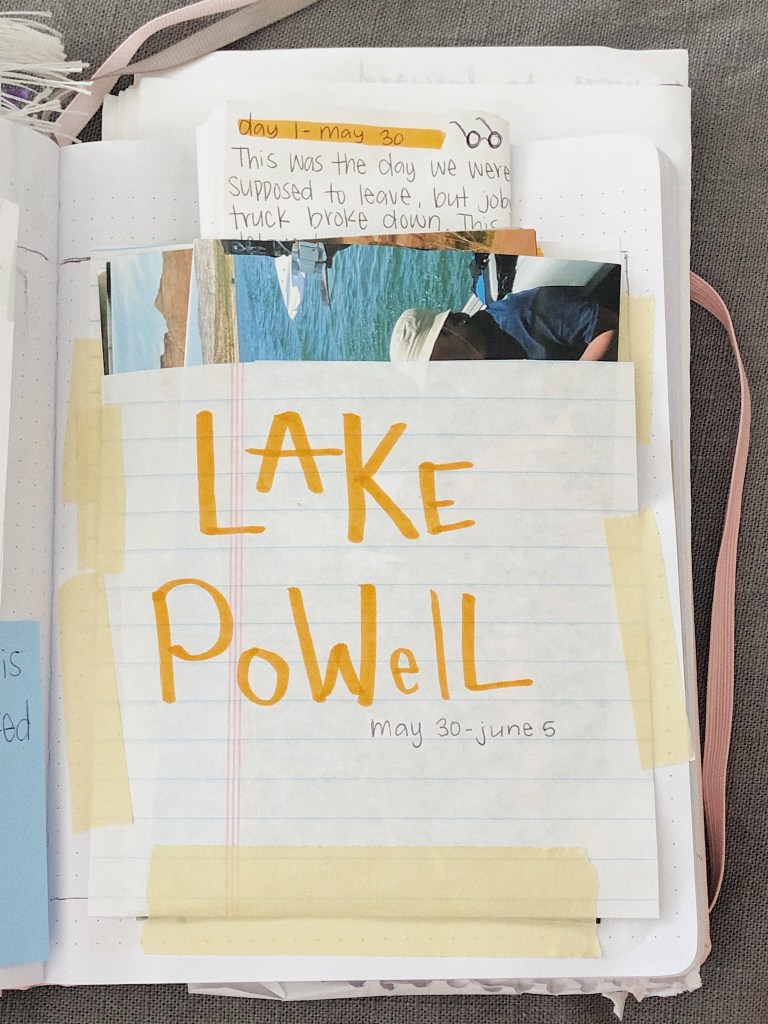 day 1 - may 30
This was the day we were
supposed to leave, but
truck broke down. This
LAKE
POWELL
may 30-june 5
is